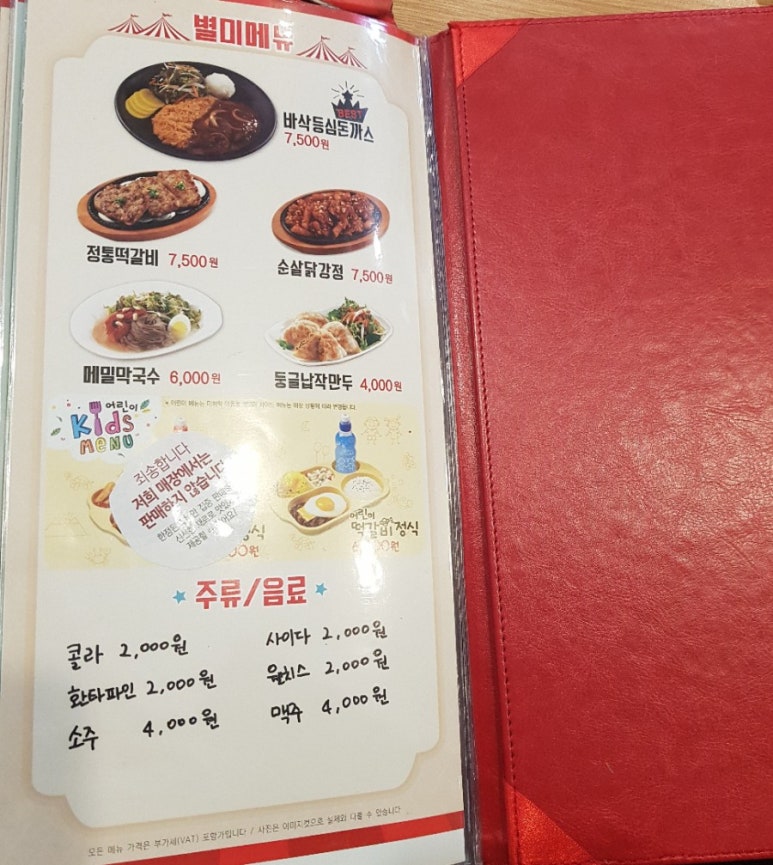 별미메뉴
BEST
바삭등심돈까스
7,500원
정통떡갈비 7,500원
순살닭강정 7,500원
메밀막국수 6,000원
둥글납작만두 4,000원
어린이
Kids
MENU
죄송합니다
저희 매장에서는
판매하지 않습니다
어린이
떡갈비정식
정식
주류/음료
콜라 2,000원
사이다 2,000원
환타파인 2,000원
웰치스 2,000원
소주 4,000원
맥주 4,000원
모든 메뉴 가격은 부가세(VAT) 포함가입니다 / 사진은 이미지컷으로 실제와 다를 수 있습니다